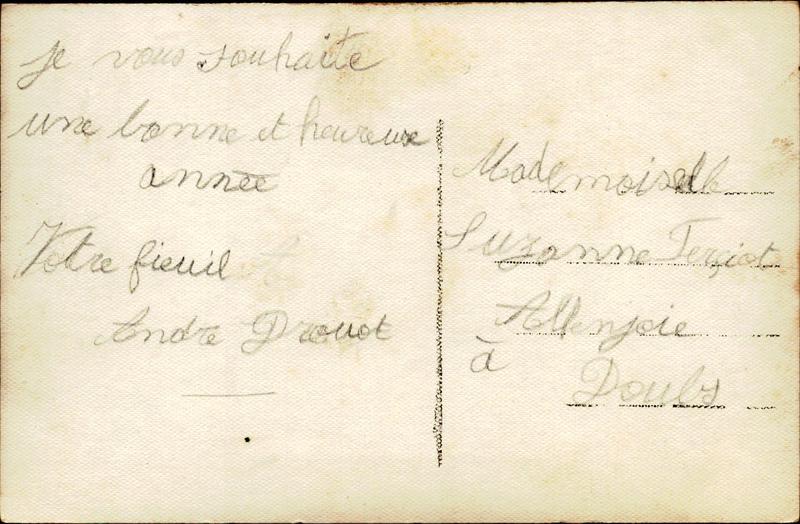 Je vous souhaite
une bonne et heureuse
année
Votre fieuil
Andre Drouot
Mademoiselle
Suzanne
Allenjoie
à
Doubs